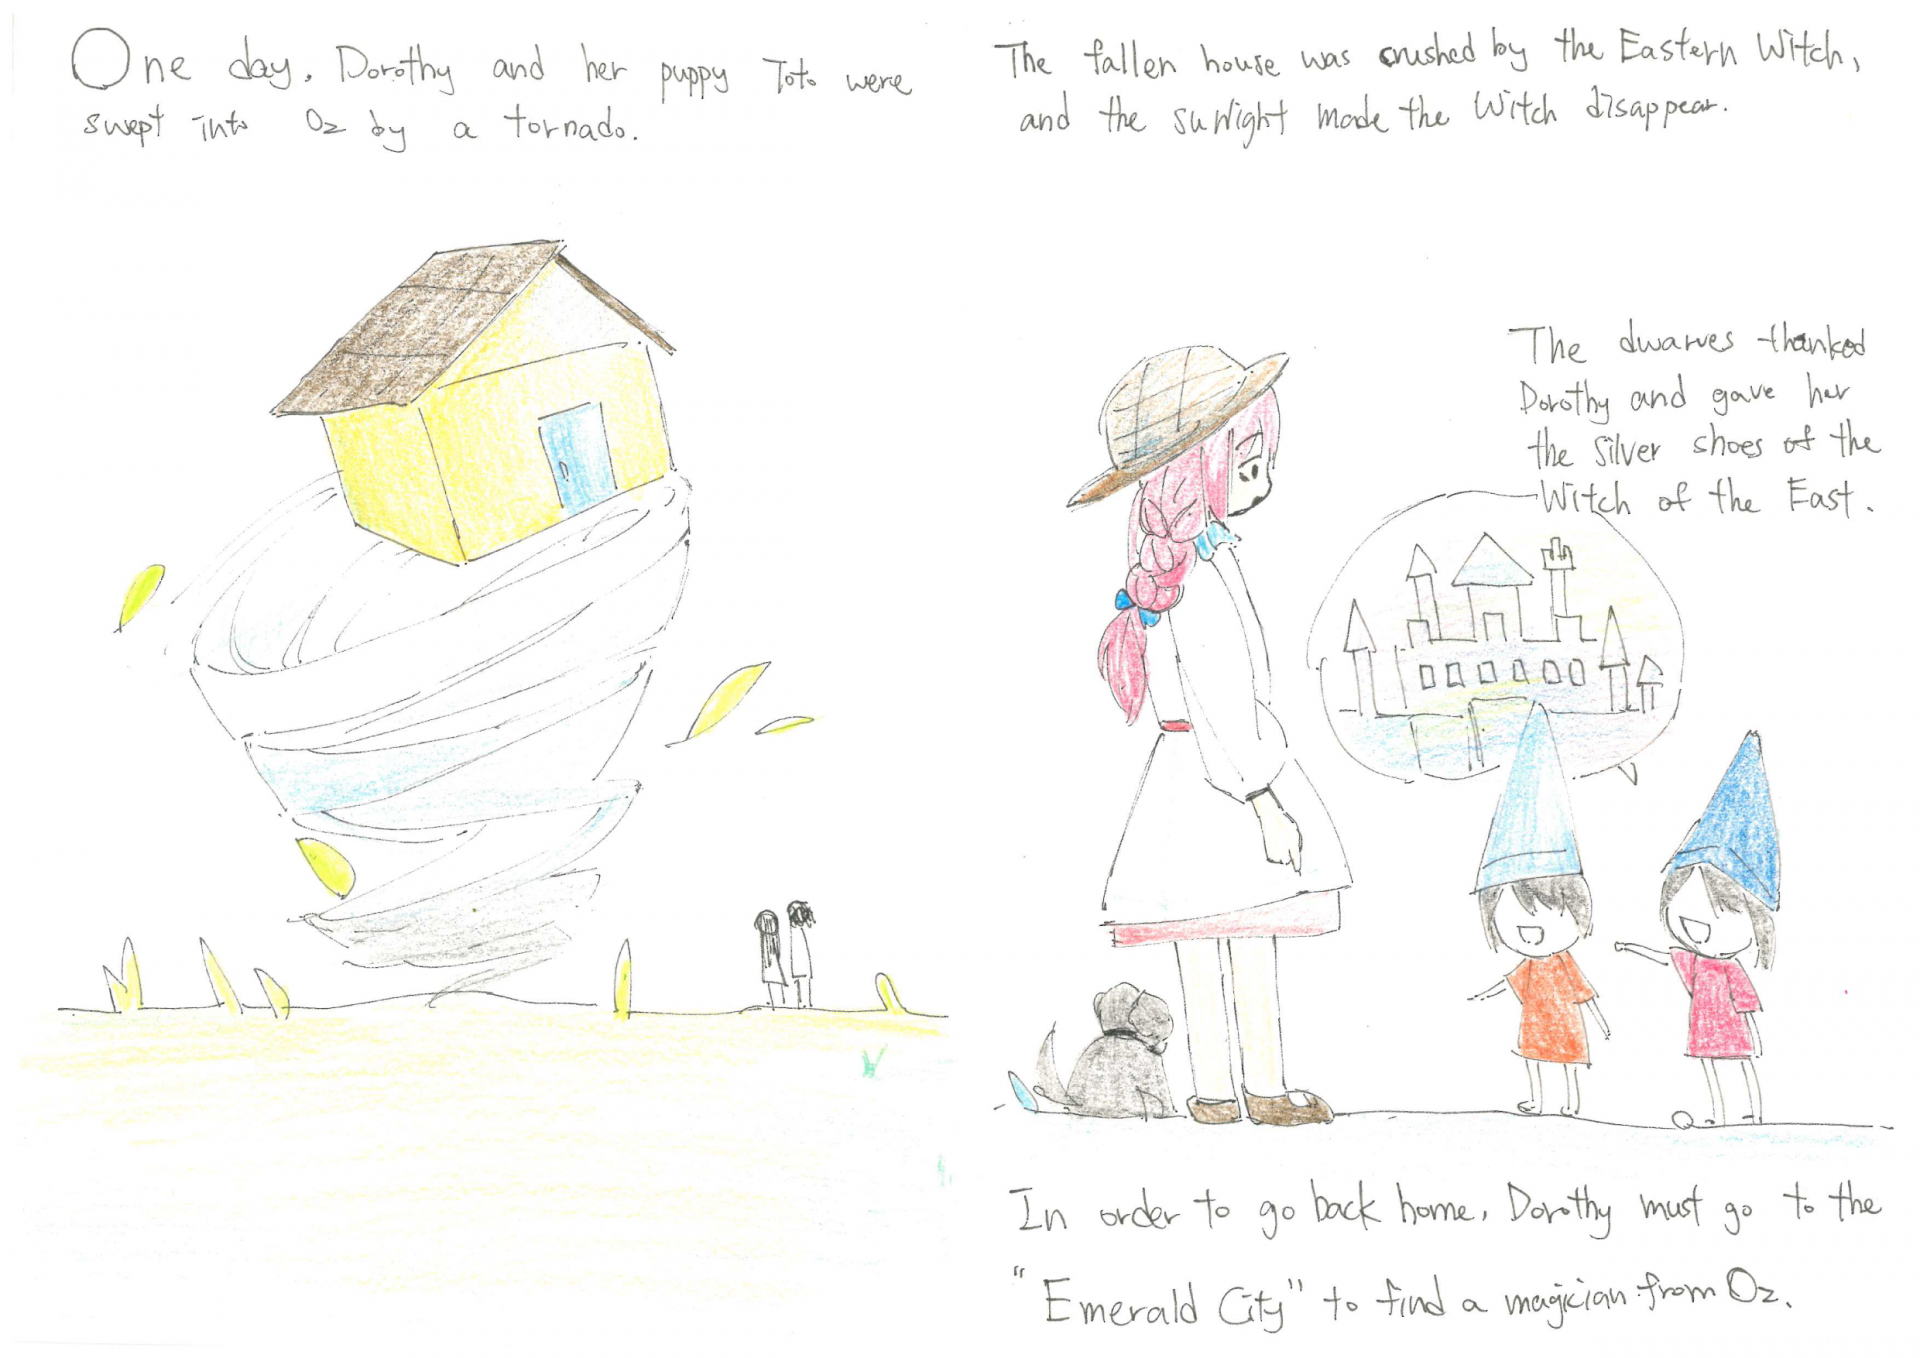 One day, Dorothy and her puppy Toto were
swept into Oz by a tornado.
The fallen house was crushed by the Eastern Witch,
and the sunlight made the Witch disappear.
The dwarves thanked
Dorothy and gave her
the silver shoes of the
Witch of the East.
In order to go back home, Dorothy must go to the
"Emerald City" to find a magician from Oz.